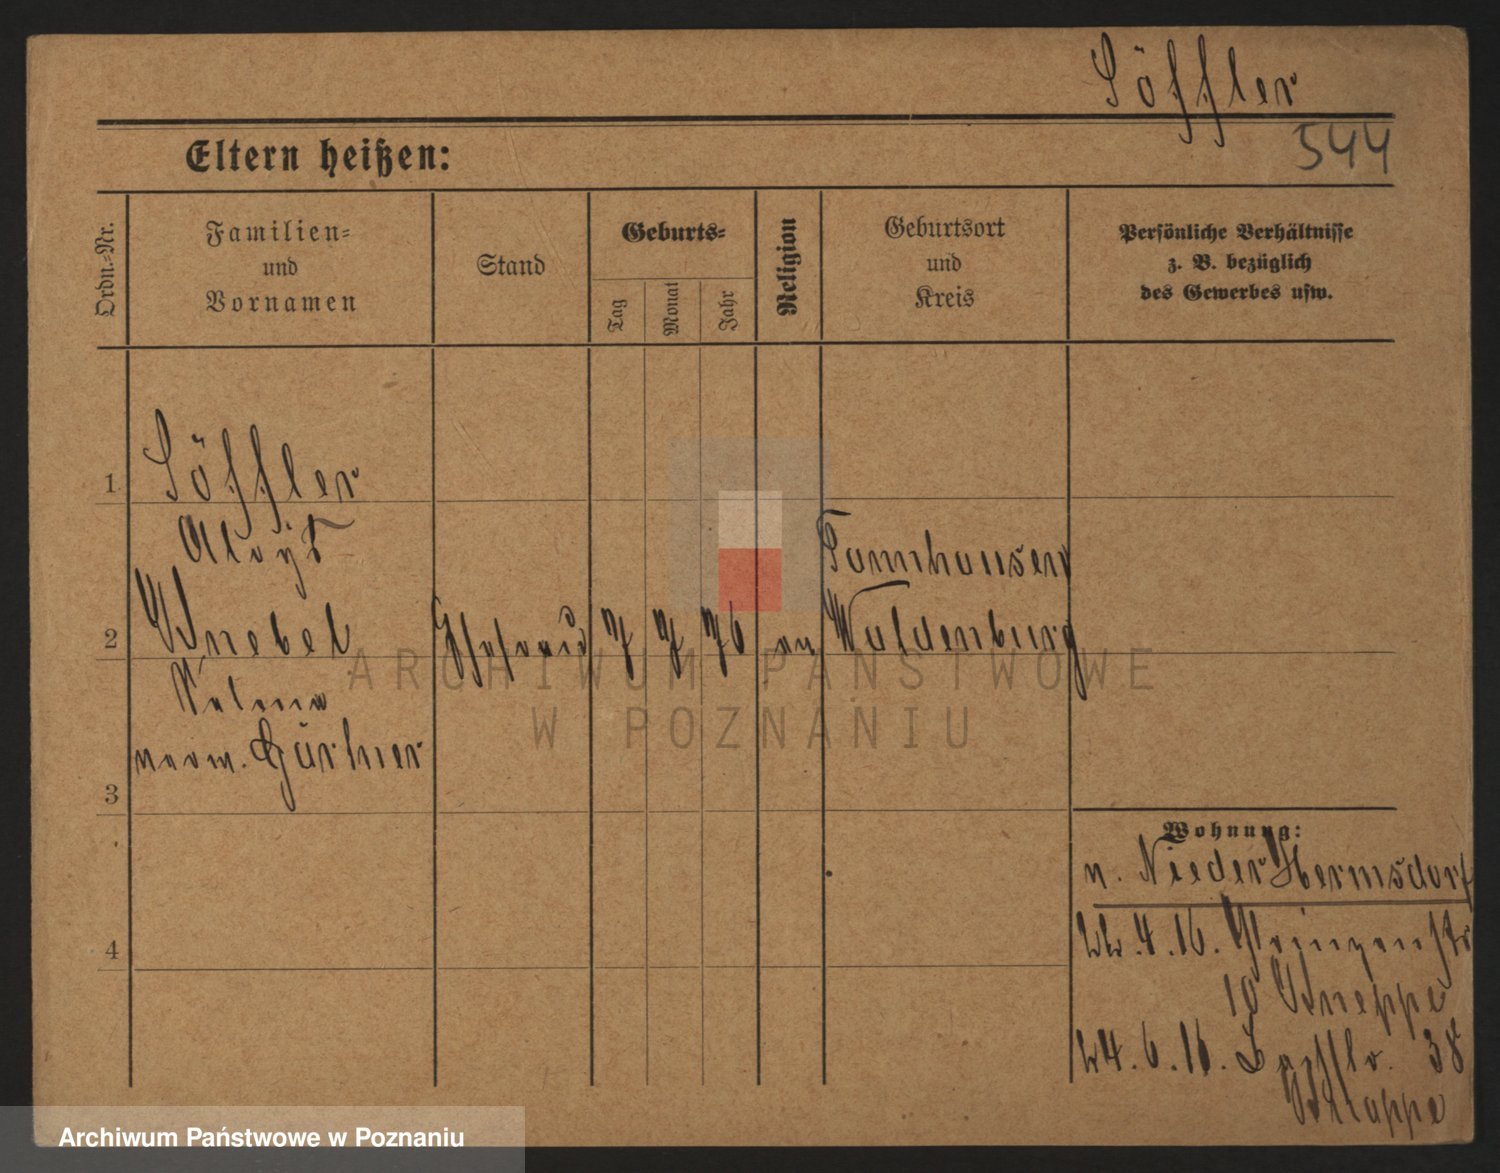 Löffler
544
Eltern heißen:
Ordn.-Nr.
Familien-
und
Vornamen
Stand
Geburts-
Tag
Monat
Jahr
Religion
Geburtsort
und
Kreis
Persönliche Verhältnisse
z. B. bezüglich
des Gewerbes usw.
1
Löffler
Aloys
Tannhausen
2
Knebel
Ehefrau 7 7 76 ev Waldenburg
Selma
verw. Gürtner
3
Wohnung:
n. Nieder Hermsdorf
4
22.4.16.
10 Kneppe
24.6.16. 38
Klappe
ARCHIWUM PAŃSTWOWE
W POZNANIU
Archiwum Państwowe w Poznaniu